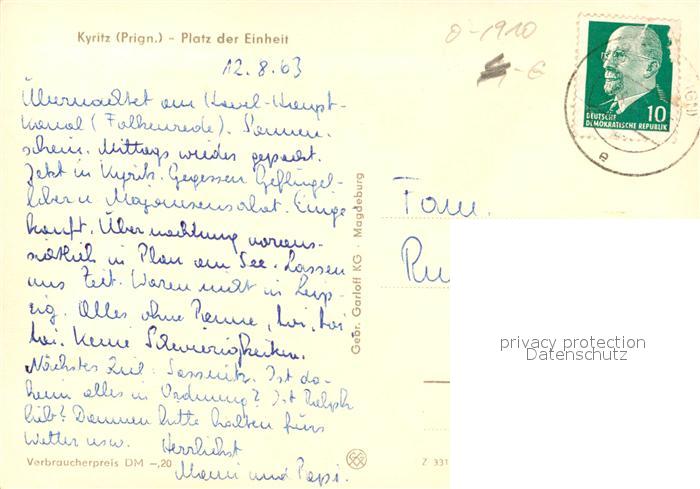 Kyritz (Prign.) - Platz der Einheit
0-1910
-€
12.8.63
Übernachtet am Havel-Haupt-
kanal (Falkenrede). Sonnen-
schein. Mittags wieder gepackt.
Jetzt in Kyritz. Gegessen Geflügel-
leber u Majonnensalat. Einge-
kauft. Übernachtung voraus-
sichtlich in Plau am See. Lassen
uns Zeit. Waren nicht in Leip-
zig. Alles ohne Panne, toi, toi
toi. Keine Schwierigkeiten.
Nächstes Ziel: Sassnitz. Ist da-
heim alles in Ordnung? Ist Ralph
lieb? Daumen bitte halten fürs
Wetter usw. Herzlichst
Mami und Papi.
Verbraucherpreis DM -,20
Gebr. Garloff KG · Magdeburg
Z 331
Fam.
Ru
10
DEUTSCHE
DEMOKRATISCHE REPUBLIK
e
privacy protection
Datenschutz